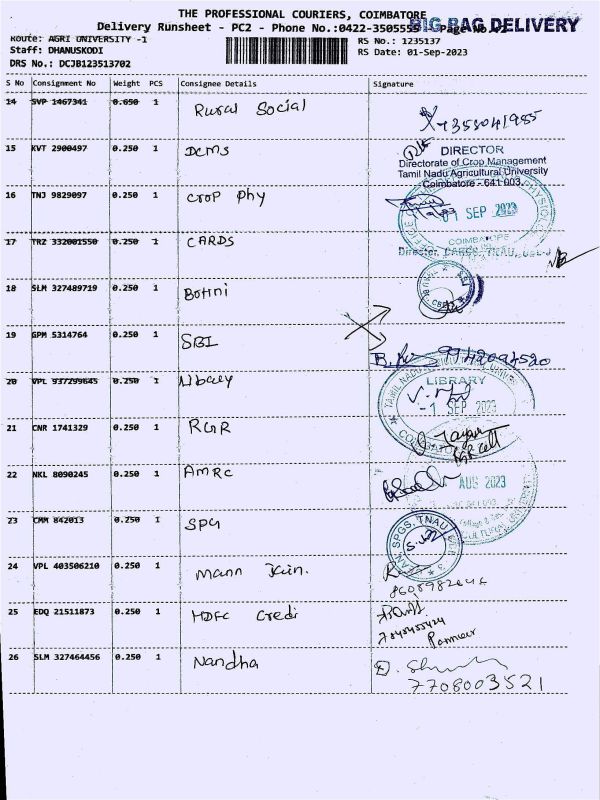 THE PROFESSIONAL COURIERS, COIMBATORE
BIG BAG DELIVERY
Delivery Runsheet - PC2 - Phone No.:0422-3505555 - Page No.
Route: AGRI UNIVERSITY -1
RS No.: 1235137
Staff: DHANUSKODI
RS Date: 01-Sep-2023
DRS No.: DCJB123513702
S No Consignment No Weight PCS Consignee Details Signature
14 SVP 1467341 0.650 1 Rural Social
15 KVT 2900497 0.250 1 DCMS
DIRECTOR
Directorate of Crop Management
Tamil Nadu Agricultural University
Coimbatore - 641 003.
16 TNJ 9829097 0.250 1 Crop Phy
01 SEP 2023
COIMBATORE
17 TRZ 332001550 0.250 1 CARDS
Director, CARDS, TNAU,
18 SLM 327489719 0.250 1 Botini
19 GPM 5314764 0.250 1 SBI
9942094520
20 VPL 937299645 0.250 1
LIBRARY
-1 SEP 2023
21 CNR 1741329 0.250 1 RGR
RGR Cell
22 NKL 8090245 0.250 1 AMRC
AUG 2023
23 CMM 842013 0.250 1 SPG
SPGS, TNAU
24 VPL 403506210 0.250 1 Mann
25 EDQ 21511873 0.250 1 HDFC Credi
26 SLM 327464456 0.250 1 Nandha
7708003521